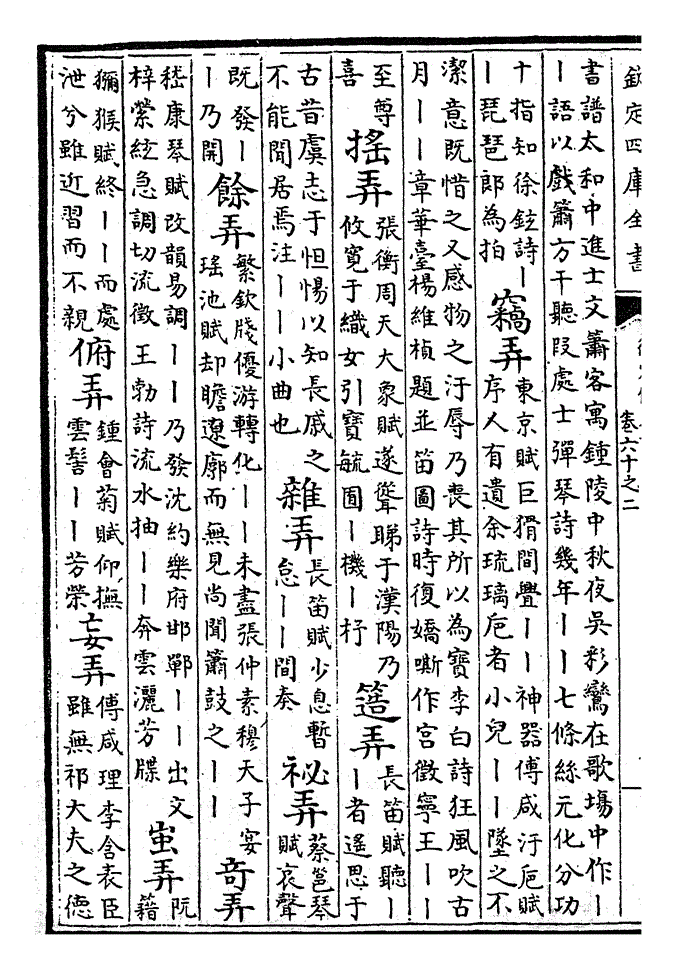 欽定四庫全書
卷六十之二
書譜太和中進士文簫客寓鍾陵中秋夜吳彩鸞在歌塲中作丨
丨語以戲簫方干聽叚處士彈琴詩幾年丨丨七條絲元化分功
十指知徐鉉詩丨
丨琵琶郎為拍
竊弄
東京賦巨猾間舋丨丨神器傅咸汙巵賦
序人有遺余琉璃巵者小兒丨丨墜之不
潔意既惜之又感物之汙辱乃喪其所以為寶李白詩狂風吹古
月丨丨章華臺楊維楨題並笛圖詩時復嬌嘶作宫徵寧王丨丨
至尊
喜
搖弄
張衡周天大象賦遂聳睇于漢陽乃
攸寛于織女引寶毓囿丨機丨杼
簉弄
長笛賦聽丨
丨者遥思于
古昔虞志于怛惕以知長戚之
不能閒居焉注丨丨小曲也
雜弄
長笛賦少息暫
怠丨丨間奏
祕弄
蔡邕琴
賦哀聲
既發丨
丨乃開
餘弄
繁欽牋優游轉化丨丨未盡張仲素穆天子宴
瑶池賦却瞻遼廓而無見尚聞簫鼓之丨丨
奇弄
嵇康琴賦改韻易調丨丨乃發沈約樂府邯鄲丨丨出文
梓縈絃急調切流徵王勃詩流水抽丨丨奔雲灑芳牒
蚩弄
阮
籍
獼猴賦終丨丨而處
泄兮雖近習而不親
俯弄
鍾會菊賦仰撫
雲髻丨丨芳榮
妄弄
傅咸理李含表臣
雖無祁大夫之德